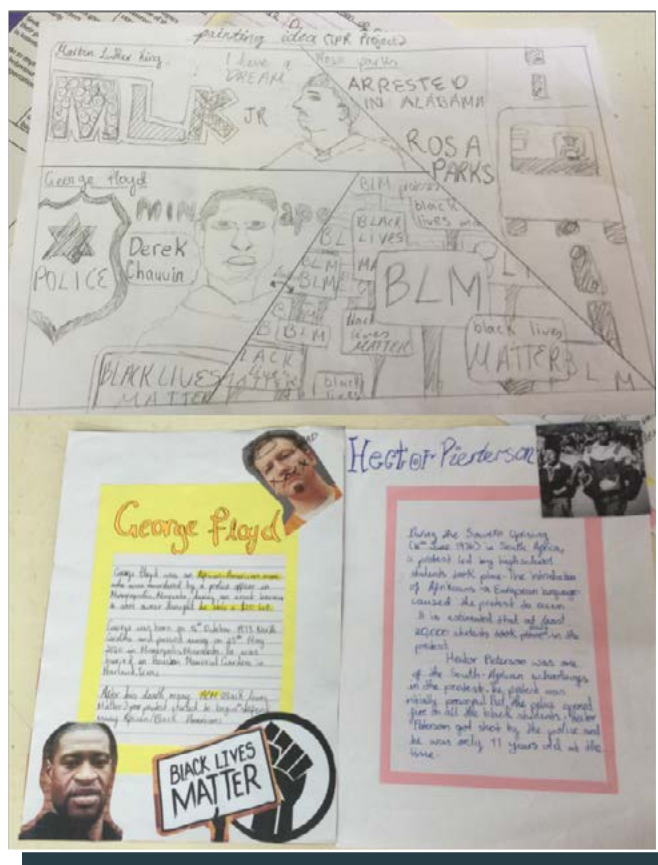 painting idea
Martin Luther King
I have a
DREAM
MLK
JR
Rosa parks
ARRESTED
IN ALABAMA
ROSA
PARKS
George Floyd
POLICE
MIN
apo
Derek
Chauvin
BLM
BLACK
LIVES
black
lives
BL
MA
BLM
BLM
BLM
BLM
black
lives
MATTER
black lives
MATTER
BLM
BLACK LIVES
MATTER
LACK
lives
MATTER
black
lives
George Floyd
George Floyd was an African-American man
who was murdered by a police officer in
during an arrest
a store owner thought he
$20
George was born on 14th October 1973 North
Carolina and passed away on 25th May
2020 in
buried in Houston Memorial Gardens in
After his death many BLM (Black Lives
Matter) protest started to
many African/Black Americans
BLACK LIVES
MATTER
Hector Pieterson
During the Soweto Uprising
(16th June 1976) in South Africa,
a protest led by high school
students took place. The introduction
of Afrikaans - a European language
caused the protest to occur.
It is estimated that at least
20,000 students took place in the
protest.
Hector Pieterson was one
of the South-African
in the protest. The protest was
initially peaceful but the police opened
fire on all the black students. Hector
Pieterson got shot by the police and
he was only 11 years old at the
time.